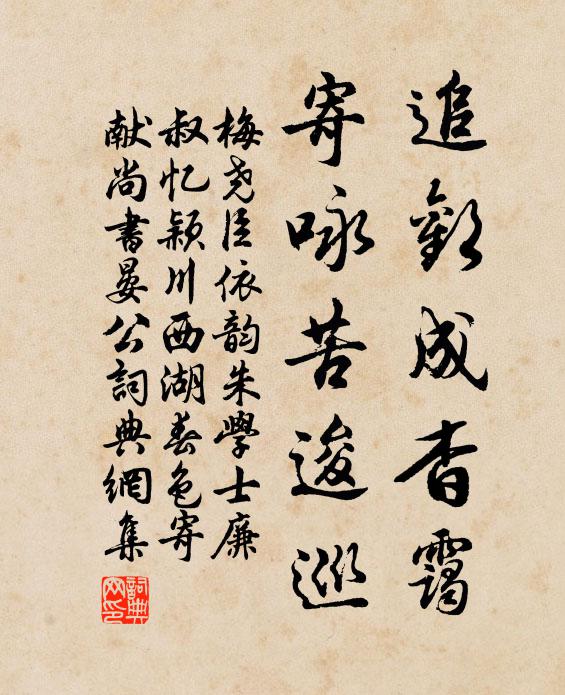 追歡成杳靄
寄咏苦逡巡
梅尧臣依韵朱學士廉
叔忆颍川西湖春色寄
献尚書晏公詞典網集
詞典网印